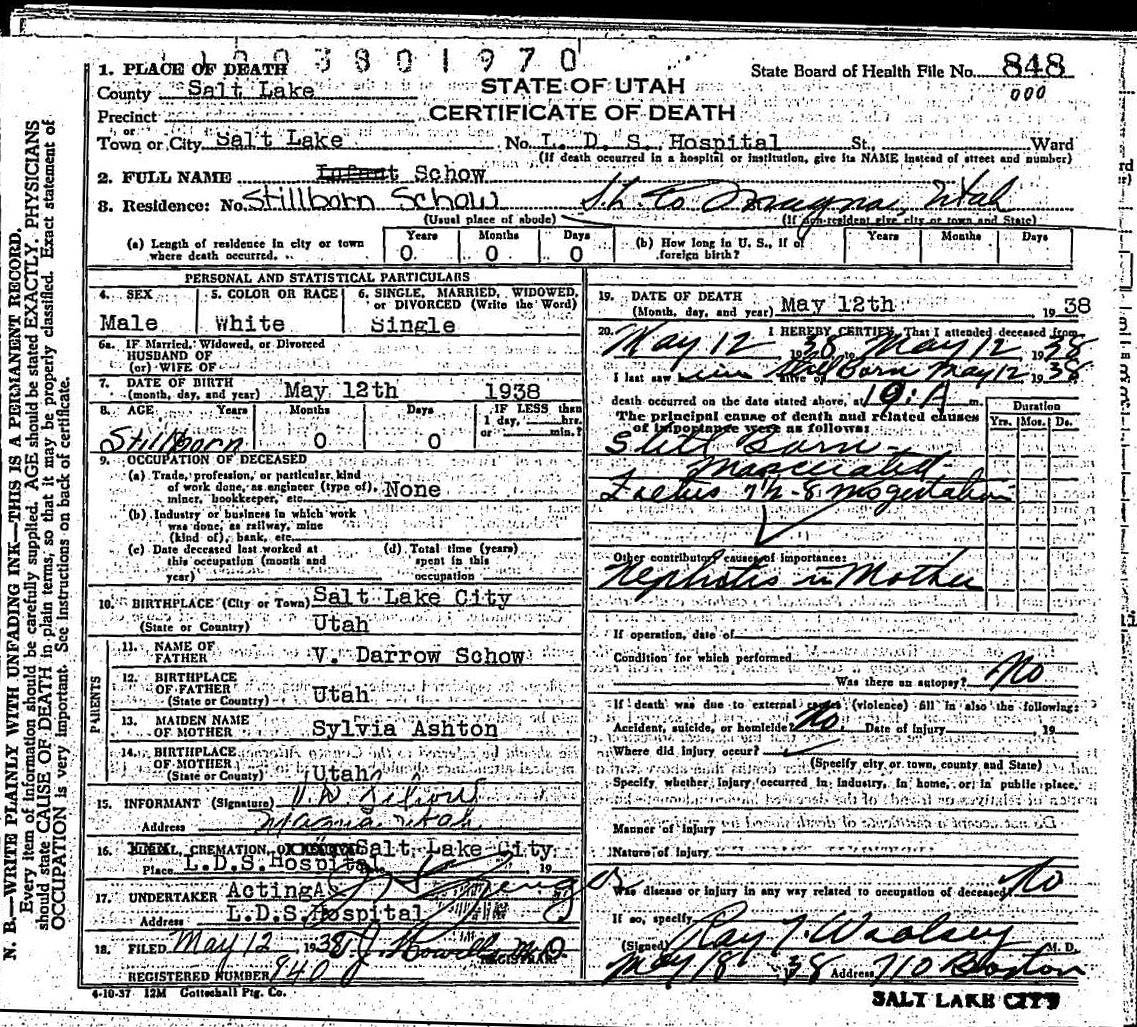 1003801970
1. PLACE OF DEATH
State Board of Health File No. 848
County Salt Lake
STATE OF UTAH
000
Precinct
CERTIFICATE OF DEATH
or
Town or City Salt Lake No. L. D. S. Hospital St., Ward
(If death occurred in a hospital or institution, give its NAME instead of street and number)
2. FULL NAME Infant Schow
3. Residence: No. Stillborn Schow Magna, Utah
(Usual place of abode) (If non-resident give city or town and State)
(a) Length of residence in city or town where death occurred.
Years Months Days
0 0 0
(b) How long in U. S., if of foreign birth?
Years Months Days
PERSONAL AND STATISTICAL PARTICULARS
4. SEX
Male
5. COLOR OR RACE
White
6. SINGLE, MARRIED, WIDOWED,
or DIVORCED (Write the Word)
Single
6a. IF Married, Widowed, or Divorced
HUSBAND OF
(or) WIFE OF
7. DATE OF BIRTH
(month, day, and year) May 12th 1938
8. AGE Years Months Days IF LESS than
1 day, hrs.
or min.?
Stillborn 0 0
9. OCCUPATION OF DECEASED
(a) Trade, profession, or particular kind
of work done, as engineer (type of),
miner, bookkeeper, etc. None
(b) Industry or business in which work
was done, as railway, mine
(kind of), bank, etc.
(c) Date deceased last worked at
this occupation (month and
year)
(d) Total time (years)
spent in this
occupation
10. BIRTHPLACE (City or Town) Salt Lake City
(State or Country) Utah
PARENTS
11. NAME OF
FATHER V. Darrow Schow
12. BIRTHPLACE
OF FATHER
(State or Country) Utah
13. MAIDEN NAME
OF MOTHER Sylvia Ashton
14. BIRTHPLACE
OF MOTHER
(State or County) Utah
15. INFORMANT (Signature) V. D. Schow
Address Magna Utah
16. CREMATION, Salt Lake City
Place L.D.S. Hospital 19
17. UNDERTAKER Acting As
Address L.D.S. Hospital
18. FILED May 12 1938 M.D.
REGISTRAR
REGISTERED NUMBER 940
4-10-37 12M Gottschall Ptg. Co.
19. DATE OF DEATH
(Month, day, and year) May 12th 19 38
20. I HEREBY CERTIFY, That I attended deceased from
May 12 1938 to May 12 1938
I last saw him alive on Still Born May 12 1938
death occurred on the date stated above, at 10:A m.
The principal cause of death and related causes
of importance were as follows:
Duration
Yrs. Mos. Ds.
Still Born -
Macerated
Foetus 7½-8 mo gestation
Other contributory causes of importance:
Nephritis in Mother
If operation, date of
Condition for which performed
Was there an autopsy? No
If death was due to external causes (violence) fill in also the following:
Accident, suicide, or homicide? No Date of injury 19
Where did injury occur?
(Specify city or town, county and State)
Specify whether injury occurred in industry, in home, or in public place.
Manner of injury
Nature of injury
Was disease or injury in any way related to occupation of deceased? No
If so, specify
(Signed) Ray T. Woolsey M. D.
May 18 38 Address 710 Boston
SALT LAKE CITY
N. B.—WRITE PLAINLY WITH UNFADING INK—THIS IS A PERMANENT RECORD.
Every item of information should be carefully supplied. AGE should be stated EXACTLY. PHYSICIANS
should state CAUSE OF DEATH in plain terms, so that it may be properly classified. Exact statement of
OCCUPATION is very important. See instructions on back of certificate.